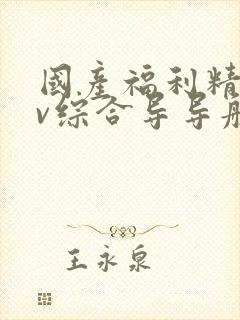 國产福利精
v综合导导航
王永泉